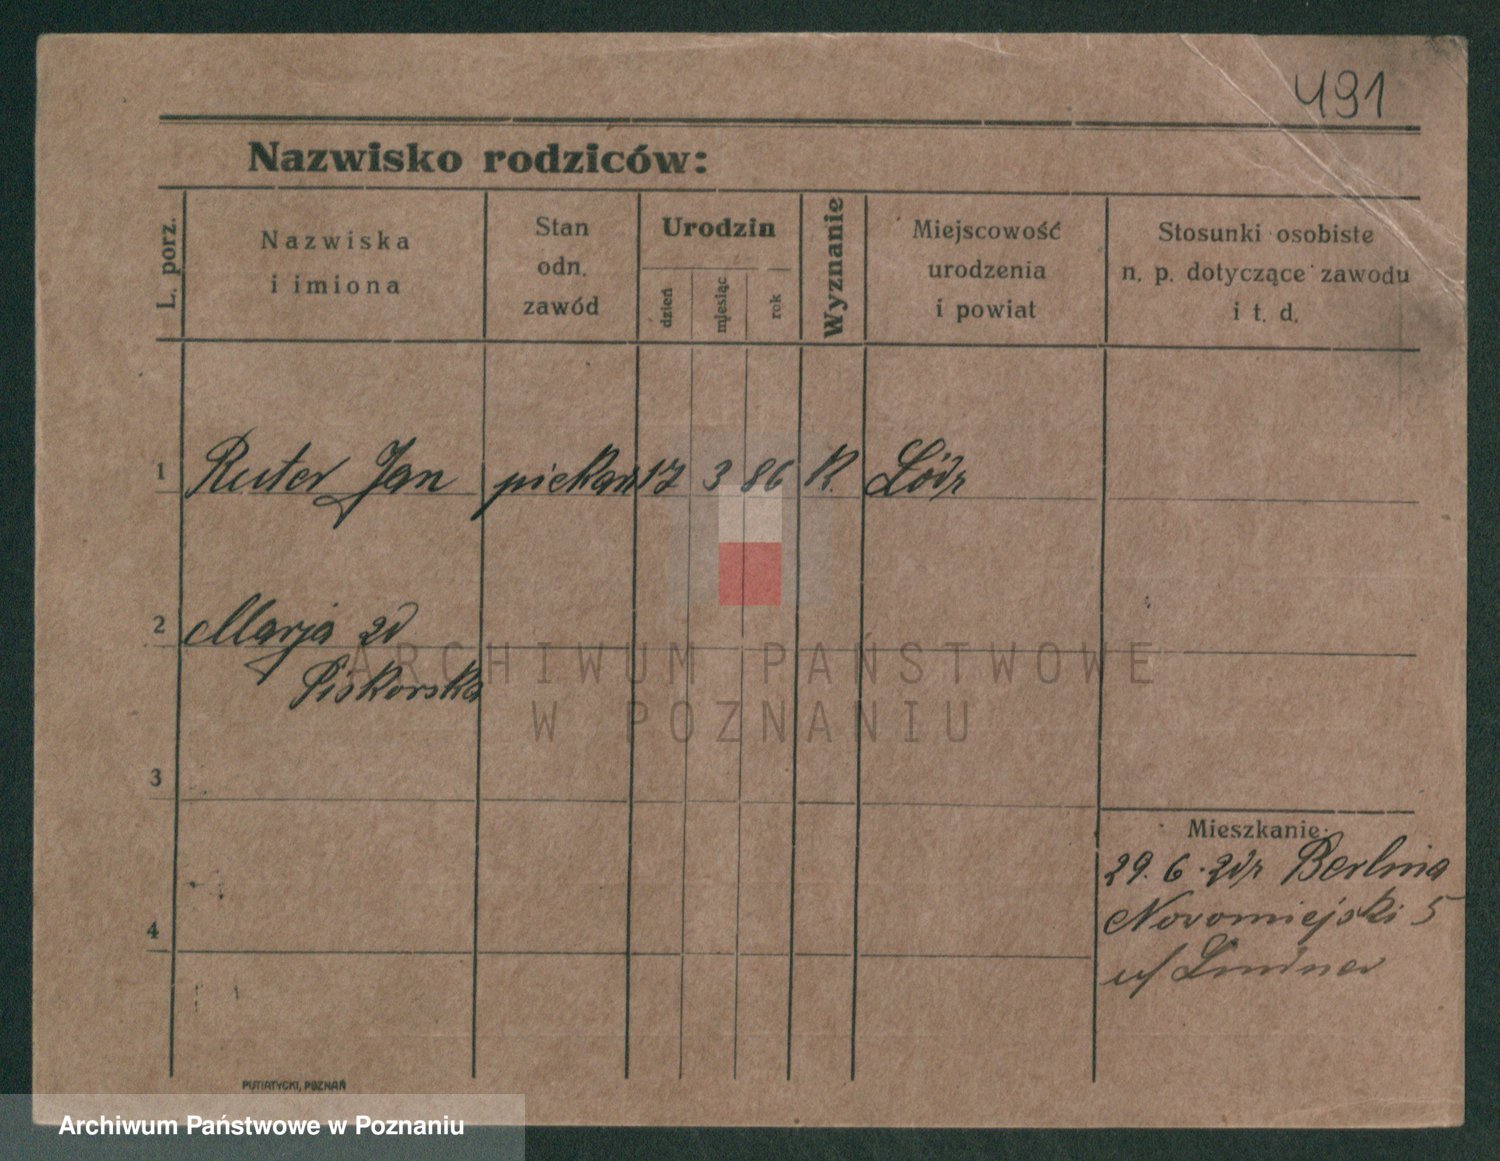 491
Nazwisko rodziców:
L. porz.
Nazwiska
i imiona
Stan
odn.
zawód
Urodzin
dzień
miesiąc
rok
Wyznanie
Miejscowość
urodzenia
i powiat
Stosunki osobiste
n. p. dotyczące zawodu
i t. d.
1 Ruter Jan piekarz 17 3 86 K. Łódź
2 Marja zd
Piskorska
3
4
Mieszkanie:
29. 6. Berlina
Nowomiejski 5
u/ Lindner
ARCHIWUM PAŃSTWOWE
W POZNANIU
PUTIATYCKI, POZNAŃ
Archiwum Państwowe w Poznaniu